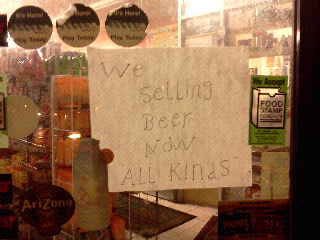 It's Here!
Play Today
It's Here!
Play Today
It's Here!
Play Today
We
Selling
Beer
Now
ALL Kinds
We Accept
FOOD
STAMP
BENEFITS
AriZona